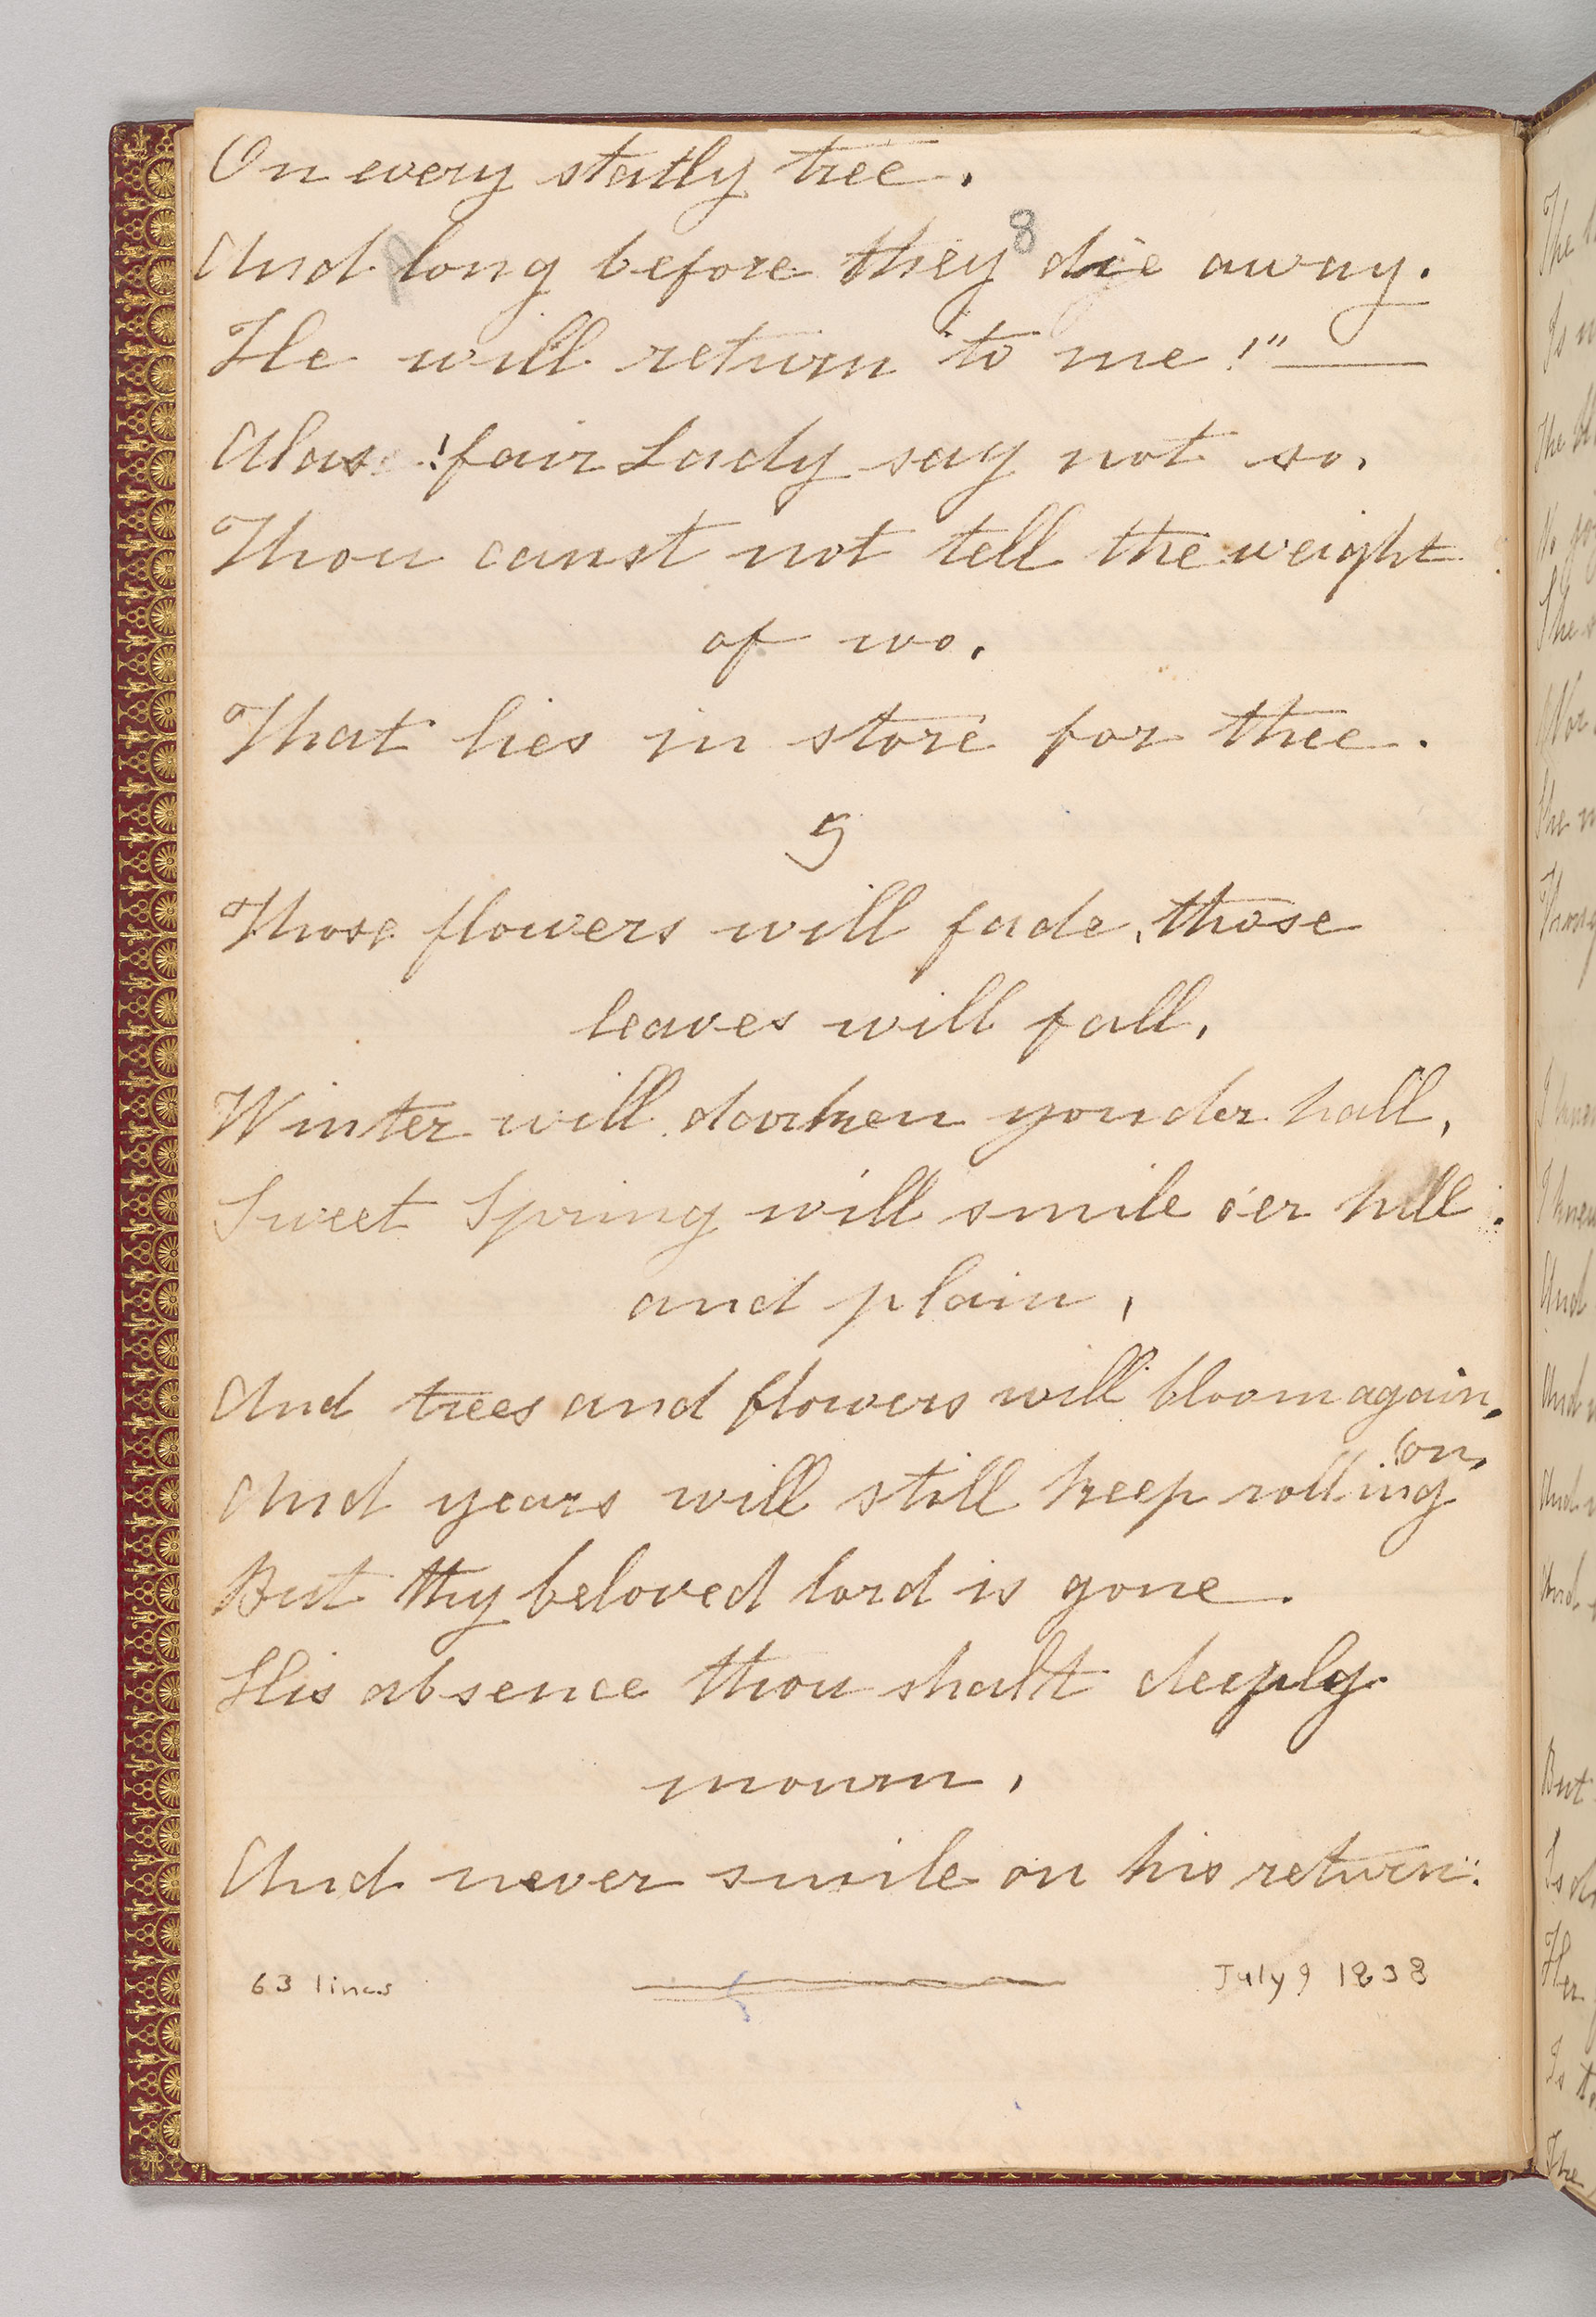 On every statly tree.
8
And long before they die away.
He will return to me!"—
Alas! fair Lady say not so,
Thou canst not tell the weight
of wo,
That lies in store for thee.
5
Those flowers will fade, those
leaves will fall,
Winter will darken yonder hall,
Sweet Spring will smile o'er hill
and plain,
And trees and flowers will bloom again,
And years will still keep rolling
(on,
But thy beloved lord is gone.
His absence thou shalt deeply
mourn,
And never smile on his return.
63 lines
July 9 1838